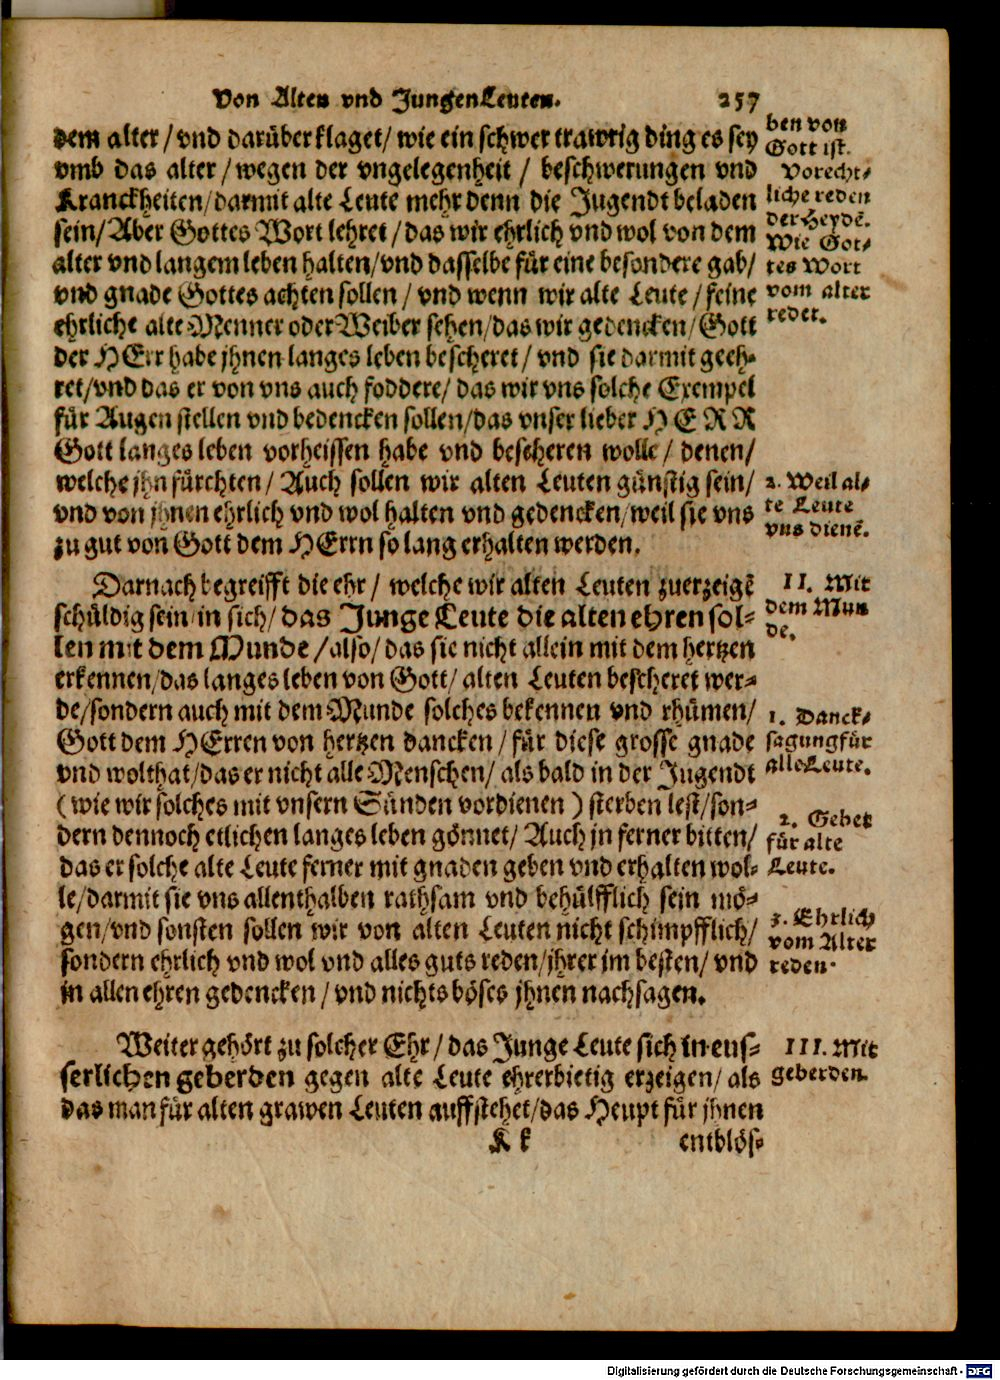 Von Alten vnd Jungen Leuten. 257
dem alter / vnd darüber klaget / wie ein schwer trawrig ding es sey
vmb das alter / wegen der vngelegenheit / beschwerungen vnd
Kranckheiten / darmit alte Leute mehr denn die Jugendt beladen
sein / Aber Gottes Wort lehret / das wir ehrlich vnd wol von dem
alter vnd langem leben halten / vnd dasselbe für eine besondere gab /
vnd gnade Gottes achten sollen / vnd wenn wir alte Leute / feine
ehrliche alte Menner oder Weiber sehen / das wir gedencken / Gott
der HErr habe jhnen langes leben bescheret / vnd sie darmit geeh-
ret / vnd das er von vns auch foddere / das wir vns solche Exempel
für Augen stellen vnd bedencken sollen / das vnser lieber HERR
Gott langes leben vorheissen habe vnd bescheren wolle / denen /
welche jhn fürchten / Auch sollen wir alten Leuten günstig sein /
vnd von jhnen ehrlich vnd wol halten vnd gedencken / weil sie vns
zu gut von Gott dem HErrn so lang erhalten werden.
ben von
Gott ist.
Vorecht-
liche reden
der Heydẽ.
Wie Got-
tes Wort
vom alter
redet.
2. Weil al-
te Leute
vns dienẽ.
Darnach begreifft die ehr / welche wir alten Leuten zuerzeigẽ
schüldig sein in sich / das Junge Leute die alten ehren sol-
len mit dem Munde / also / das sie nicht allein mit dem hertzen
erkennen / das langes leben von Gott / alten Leuten bescheret wer-
de / sondern auch mit dem Munde solches bekennen vnd rhümen /
Gott dem HErren von hertzen dancken / für diese grosse gnade
vnd wolthat / das er nicht alle Menschen / als bald in der Jugendt
( wie wir solches mit vnsern Sünden vordienen ) sterben lest / son-
dern dennoch etlichen langes leben gönnet / Auch jn ferner bitten /
das er solche alte Leute ferner mit gnaden geben vnd erhalten wol-
le / darmit sie vns allenthalben rathsam vnd behülfflich sein mö-
gen / vnd sonsten sollen wir von alten Leuten nicht schimpfflich /
sondern ehrlich vnd wol vnd alles guts reden / jhrer im besten / vnd
in allen ehren gedencken / vnd nichts böses jhnen nachsagen.
II. Mit
dem Mun
de.
1. Danck-
sagung für
alle Leute.
2. Gebet
für alte
Leute.
3. Ehrlich
vom Alter
reden.
Weiter gehört zu solcher Ehr / das Junge Leute sich in eus-
serlichen geberden gegen alte Leute ehrerbietig erzeigen / als
das man für alten grawen Leuten auffstehet / das Heupt für jhnen
III. Mit
geberden.
K k entblös-
Digitalisierung gefördert durch die Deutsche Forschungsgemeinschaft - DFG